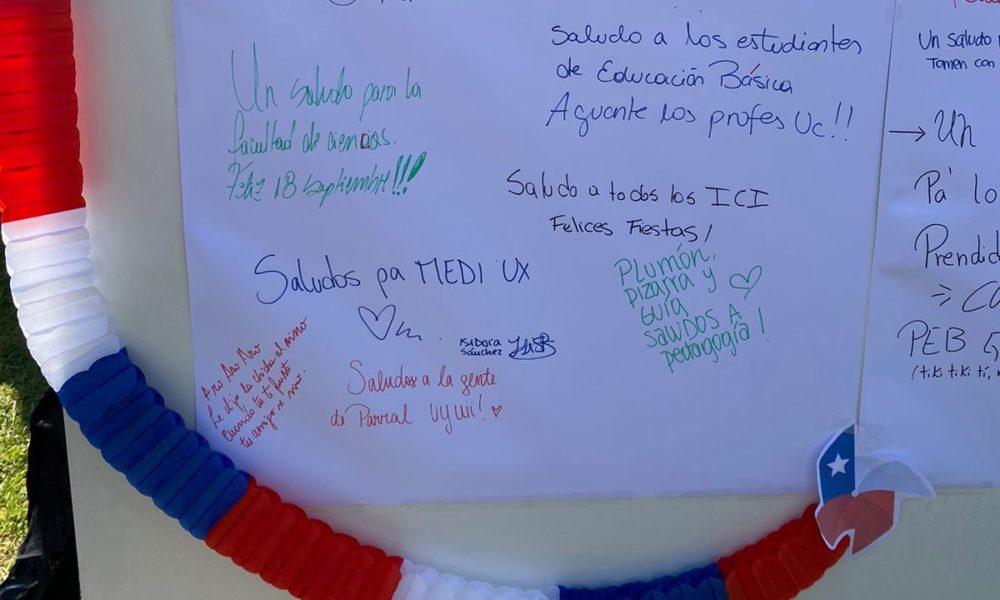 Saludo a los estudiantes
de Educación Básica
Aguante los profes Uc!!
Un saludo para la
facultad de ciencias.
Feliz 18 septiembre!!!
Saludo a todos los ICI
Felices Fiestas!
Saludos pa MEDI UX
Plumón,
pizarra y
GUÍA
SALUDOS A
pedagogía!
Isidora
Sánchez
Aro Aro Aro
Le dijo la chicha al vino
Cuando tu te
tu amigo
Saludos a la gente
de Parral uyuii!
Un saludo
Tomen con
→ Un
Pa' lo
Prendid
PEB
(tiki tiki tí,